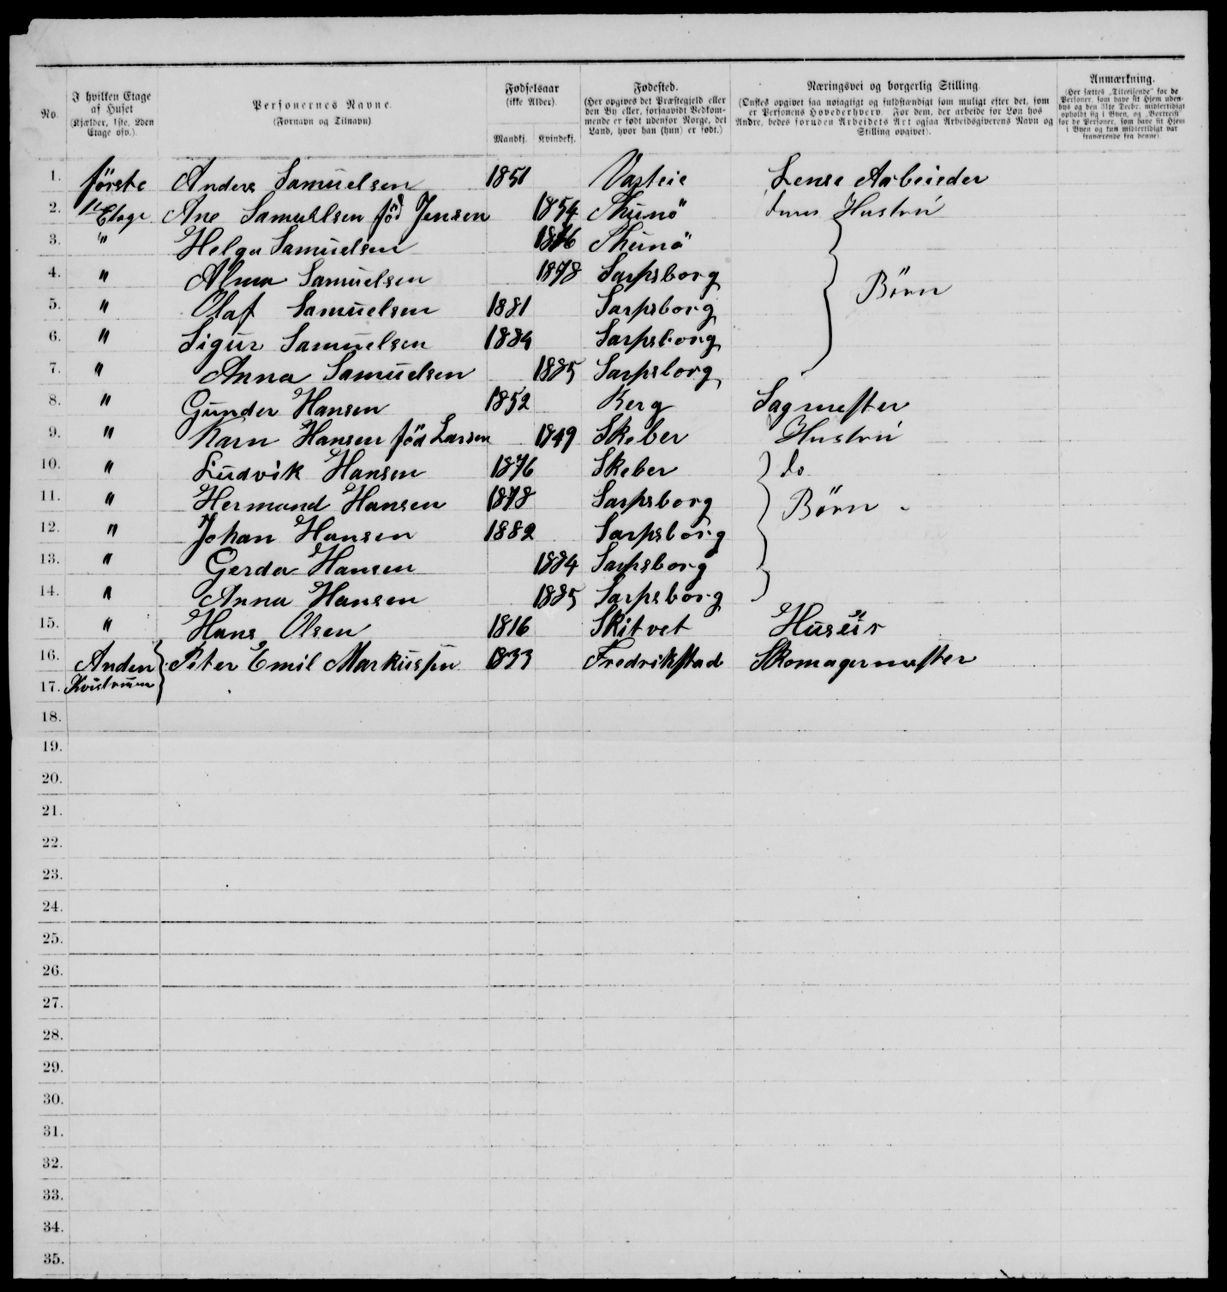 No.
I hvilken Etage af Huset (Kjælder, 1ste, 2den Etage osv.).
Personernes Navne. (Fornavn og Tilnavn)
Fødselsaar (ikke Alder).
Mandkj. Kvindekj.
Fødested. (Her opgives det Præstegjeld eller den By eller, forsaavidt Vedkommende er født udenfor Norge, det Land, hvor han (hun) er født.)
Næringsvei og borgerlig Stilling. (Ønskes opgivet saa nøiagtigt og fuldstændigt som muligt efter det, som er Personens Hovederhverv. For dem, der arbeide for Løn hos Andre, bedes foruden Arbeidets Art ogsaa Arbeidsgiverens Navn og Stilling opgivet).
Anmærkning. (Her sættes „Tilreisende" for de Personer, som have sit Hjem udenbys og den 31te Decbr. midlertidigt opholdt sig i Byen, og „Bortreist" for de Personer, som have sit Hjem i Byen og kun midlertidigt var fraværende fra denne).
1. første Anders Samuelsen 1851 Lense Aarbeieder
2. Etage Ane Samuelsen född Jensen 1854 Thunö Hustrü
3. " Helga Samuelsen 1876 Thunö
4. " Alma Samuelsen 1878 Sarpsborg
5. " Olaf Samuelsen 1881 Sarpsborg Börn
6. " Sigur Samuelsen 1884 Sarpsborg
7. " Anna Samuelsen 1885 Sarpsborg
8. " Gunder Hansen 1852 Berg Sagmester
9. " Karn Hansen född Larsen 1849 Skeber Hustrü
10. " Ludvik Hansen 1876 Skeber do
11. " Hermand Hansen 1878 Sarpsborg Börn
12. " Johan Hansen 1882 Sarpsborg
13. " Gerda Hansen 1884 Sarpsborg
14. " Anna Hansen 1885 Sarpsborg
15. " Hans Olsen 1816 Skitvet
16. Anden Peter Emil Markussen 1833 Fredrikstad Skomagermester
17.
18.
19.
20.
21.
22.
23.
24.
25.
26.
27.
28.
29.
30.
31.
32.
33.
34.
35.